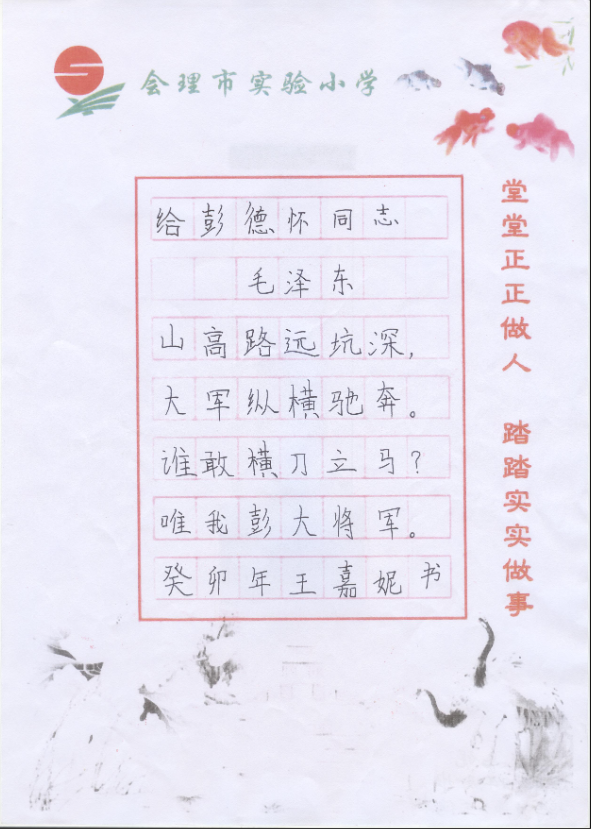 会理市实验小学
给彭德怀同志
毛泽东
山高路远坑深,
大军纵横驰奔。
谁敢横刀立马?
唯我彭大将军。
癸卯年王嘉妮书
堂堂正正做人 踏踏实实做事